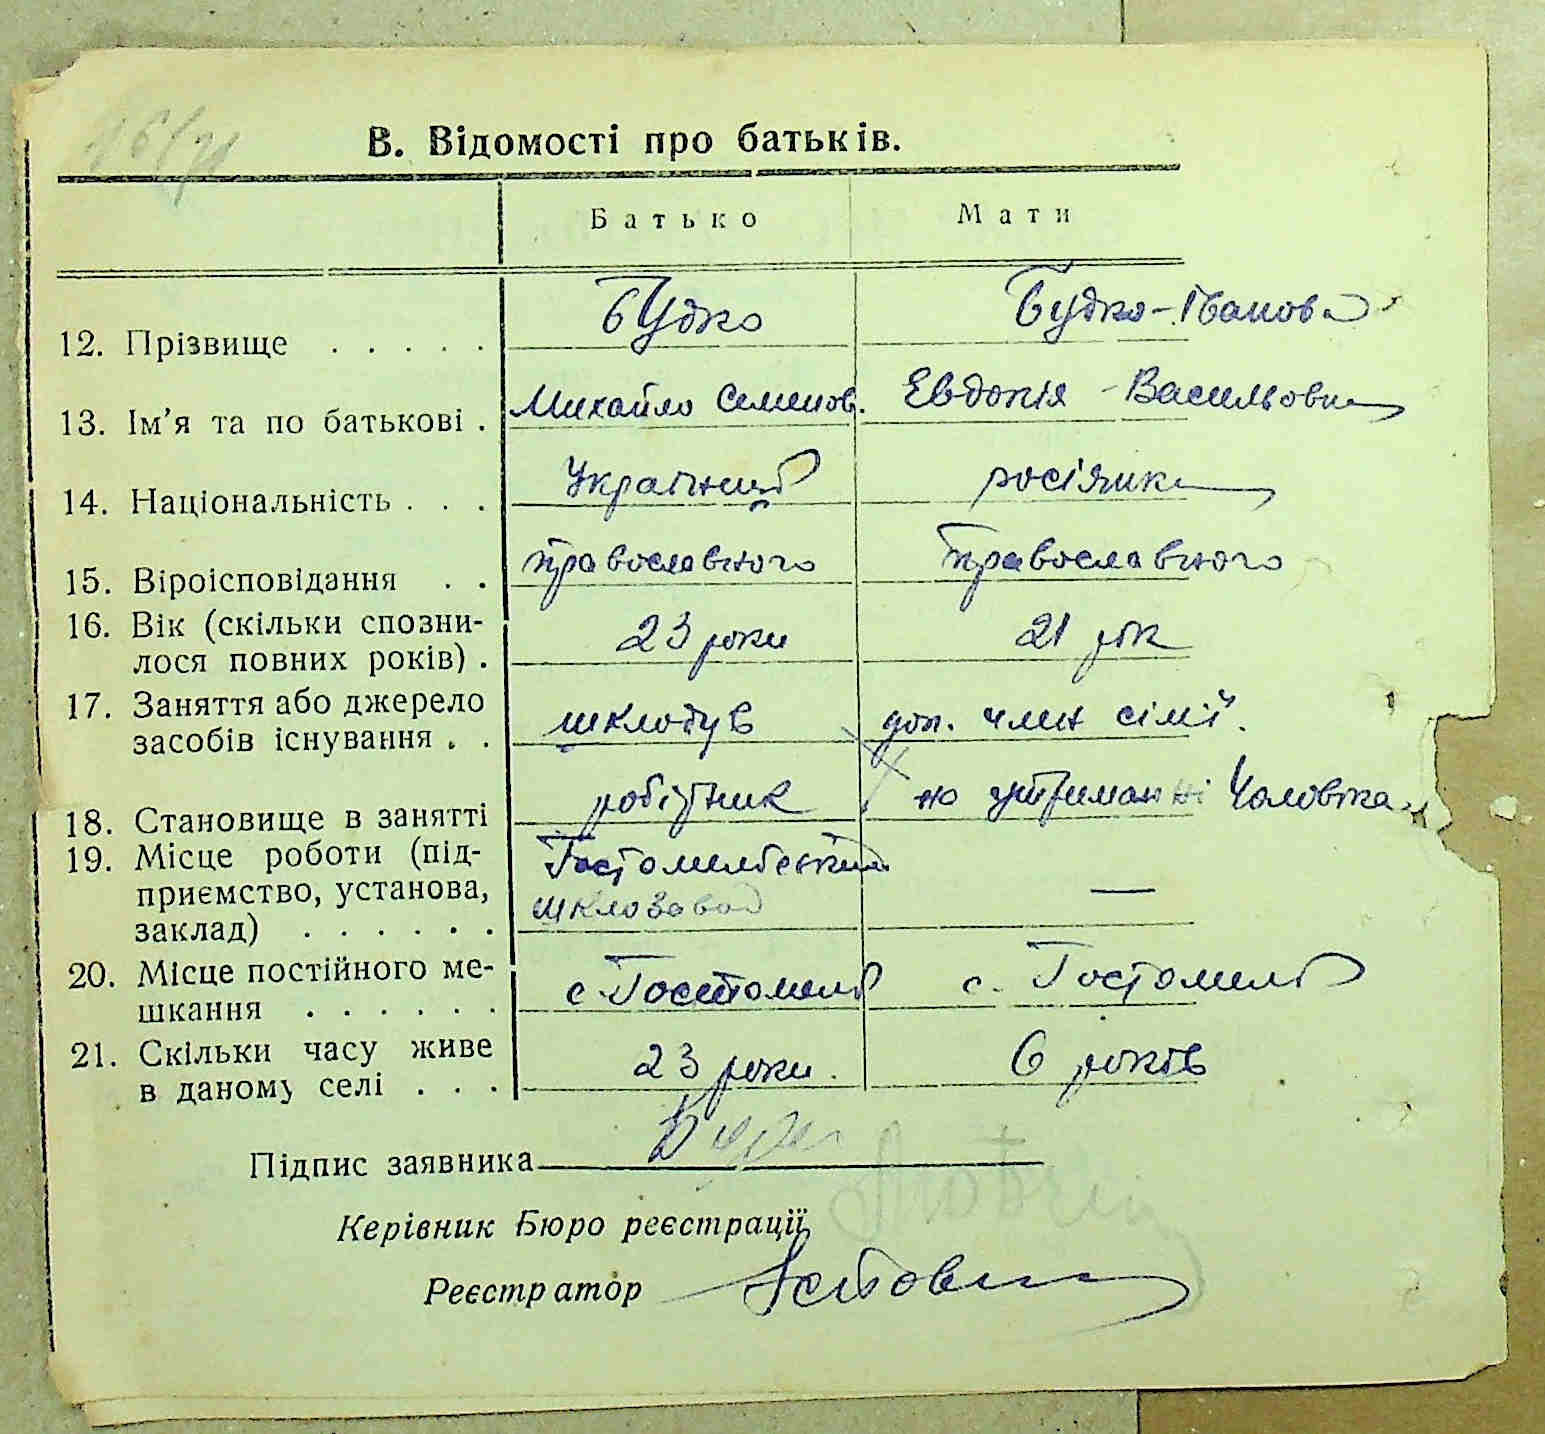 В. Відомості про батьків.
Батько Мати
12. Прізвище . . . . . Будко Будко-Іванова
13. Ім'я та по батькові . Михайло Семенов. Евдокія Васильовна
14. Національність . . . Українець росіянка
15. Віроісповідання . . православного православного
16. Вік (скільки спозни-
лося повних років) . 23 роки 21 рік
17. Заняття або джерело
засобів існування . . шклодув доп. член сім'ї.
18. Становище в занятті робітник на утриманні Чоловіка
19. Місце роботи (під- Гостомельський
приємство, установа, шклозавод —
заклад) . . . . . .
20. Місце постійного ме-
шкання . . . . . . с. Гостомель с. Гостомель
21. Скільки часу живе
в даному селі . . . 23 роки. 6 років
Підпис заявника
Керівник Бюро реєстрації
Реєстратор